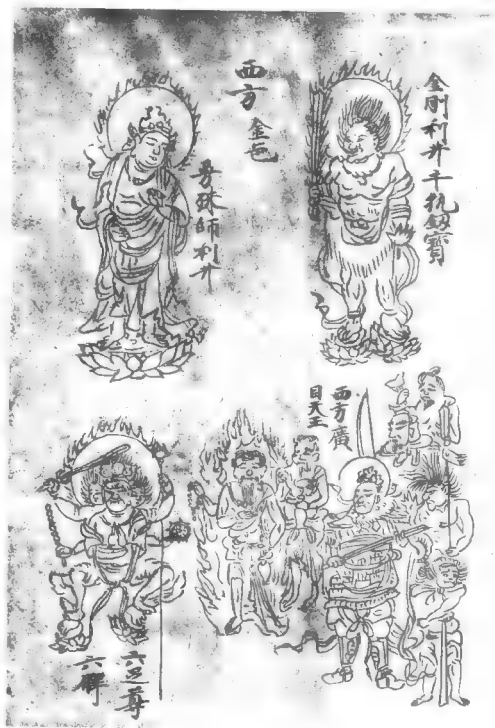 金剛利井千秡劔寳
西方 金色
曼殊師利井
西方廣
目天王
六足尊
六臂